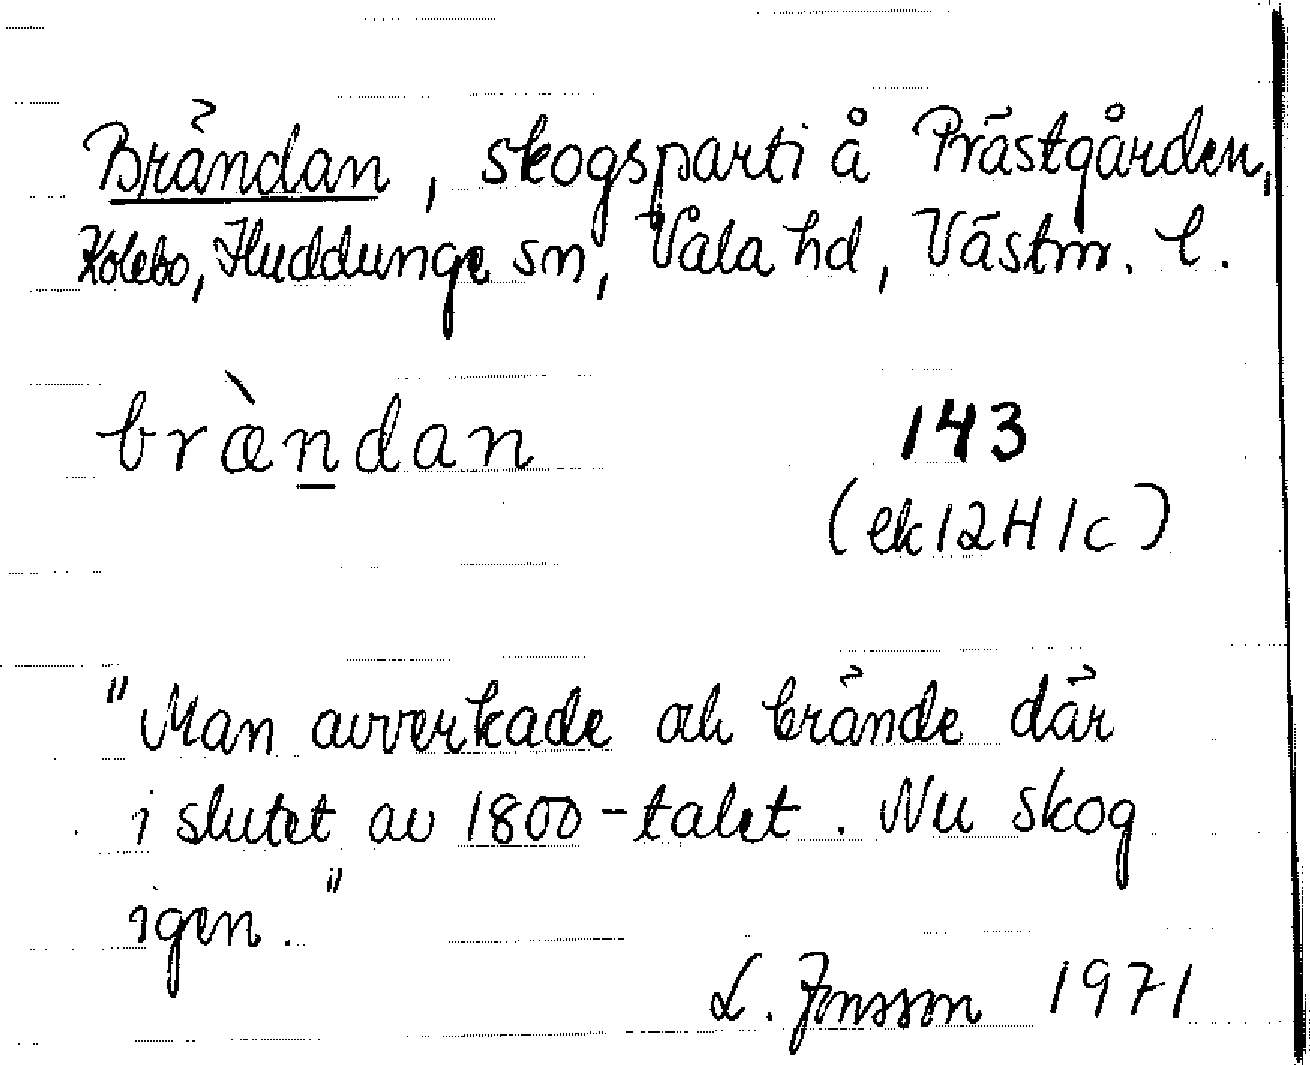 Brändan, skogsparti å Prästgården,
Kolebo, Huddunge sn, Vala hd, Västm. l.
bràndan 143
(ek 12H 1c)
"Man avverkade och brände där
i slutet av 1800-talet. Nu skog
igen."
L. Jonsson 1971